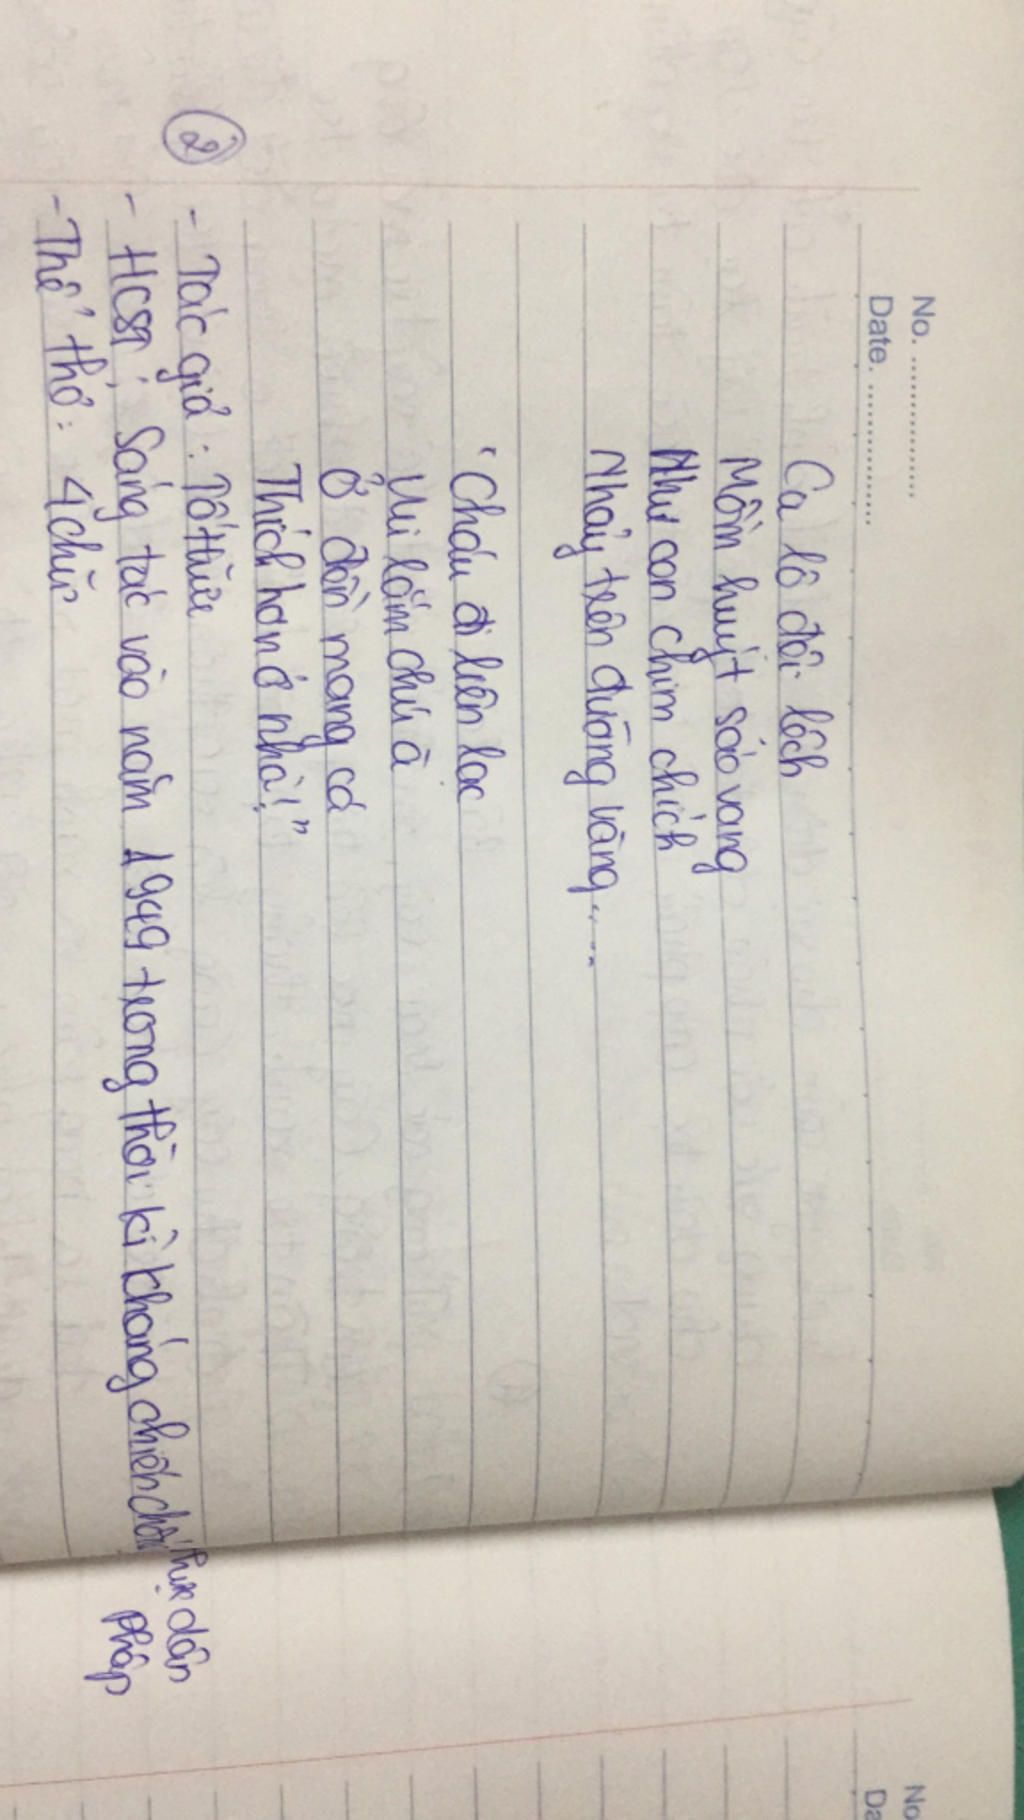 No. ................
Date. ................
Ca lô đội lệch
Mồm huýt sáo vang
Như con chim chích
Nhảy trên đường vàng.....
"Cháu đi liên lạc
Vui lắm chú à
Ở đồn mang cá
Thích hơn ở nhà!"
②
- Tác giả : Tố Hữu
- HCST : Sáng tác vào năm 1949 trong thời kì kháng chiến chống thực dân Pháp
- Thể thơ : 4 chữ
No
Da